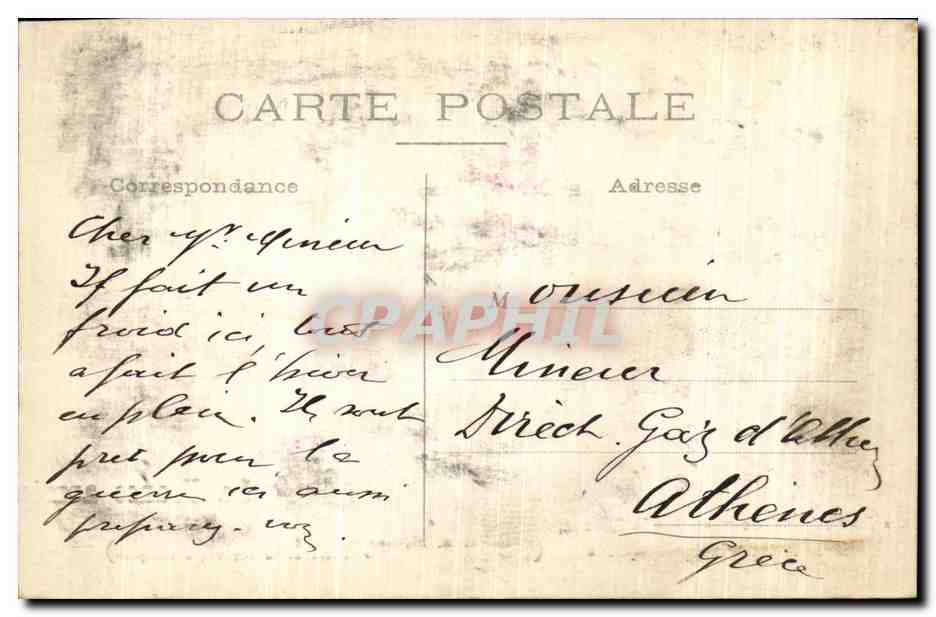 CARTE POSTALE
Correspondance
Adresse
Cher Mr. Mineur
Il fait un
froid ici,
a fait l'hiver
en plein. Ils sont
pret pour la
guerre ici aussi
CPAPHIL
Monsieur
Mineur
Diréct. Gaz d'Athen
Athènes
Grèce